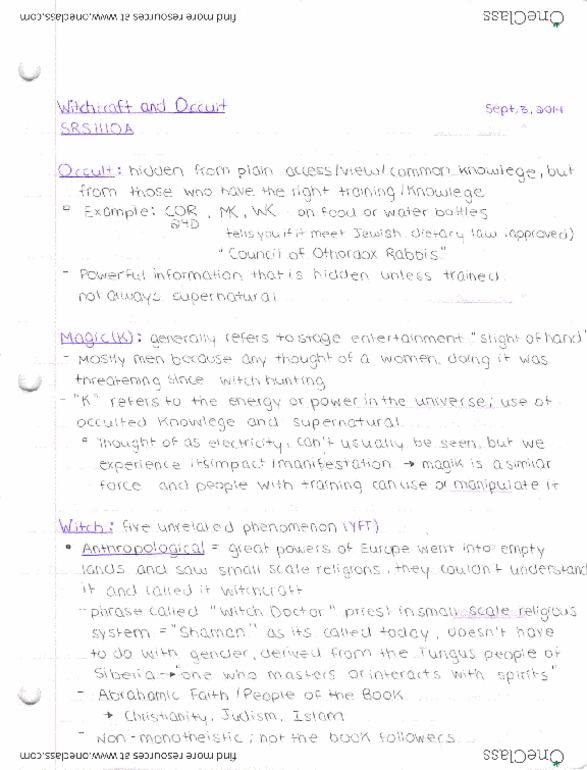 find more resources at www.oneclass.com
OneClass
Witchcraft and Occult
Sept. 3, 2014
SRS1110A
Occult: hidden from plain access/view/common knowlege, but
from those who have the right training/knowlege
Example: COR, MK, WK on food or water bottles
240
tells you if it meet Jewish dietary law (approved)
"Council of Othoraox Rabbis"
- Powerful information that is hidden unless trained.
not always supernatural
Magic(K): generally refers to stage entertainment "slight of hand"
- Mostly men because any thought of a women, doing it was
threatening since witch hunting
- "K" refers to the energy or power in the universe; use of
occulted knowlege and supernatural
Thought of as electricity, can't usually be seen, but we
experience its impact/manifestation → magik is a similar
force and people with training can use or manipulate it
Witch: five unrelated phenomenon (YFT)
• Anthropological = great powers of Europe went into empty
lands and saw small scale religions, they couldn't understand
it and called it witchcraft
- phrase called "Witch Doctor" priest in small scale religious
system = "Shaman" as its called today, doesn't have
to do with gender, derived from the Tungus people of
Siberia → "one who masters or interacts with spirits"
- Abrahamic Faith/People of the Book
→ Christianity, Judism, Islam
- Non-monotheistic; not the book followers
find more resources at www.oneclass.com
OneClass